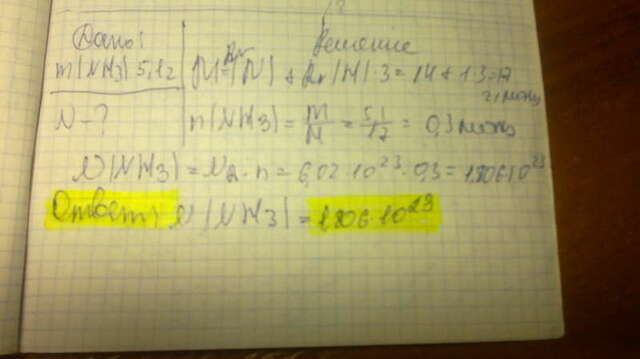 Дано: Решение
m(NH3) 5,1г M=Ar(N)+Ar(H)·3=14+1·3=17
г/моль
N-? n(NH3)=m/M=5,1/17=0,3моль
N(NH3)=NA·n=6,02·10²³·0,3=1,806·10²³
Ответ: N(NH3)=1,806·10²³